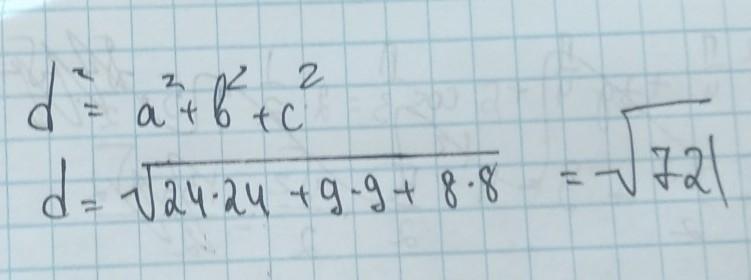 d² = a² + b² + c²
d = √24·24 + 9·9 + 8·8 = √721